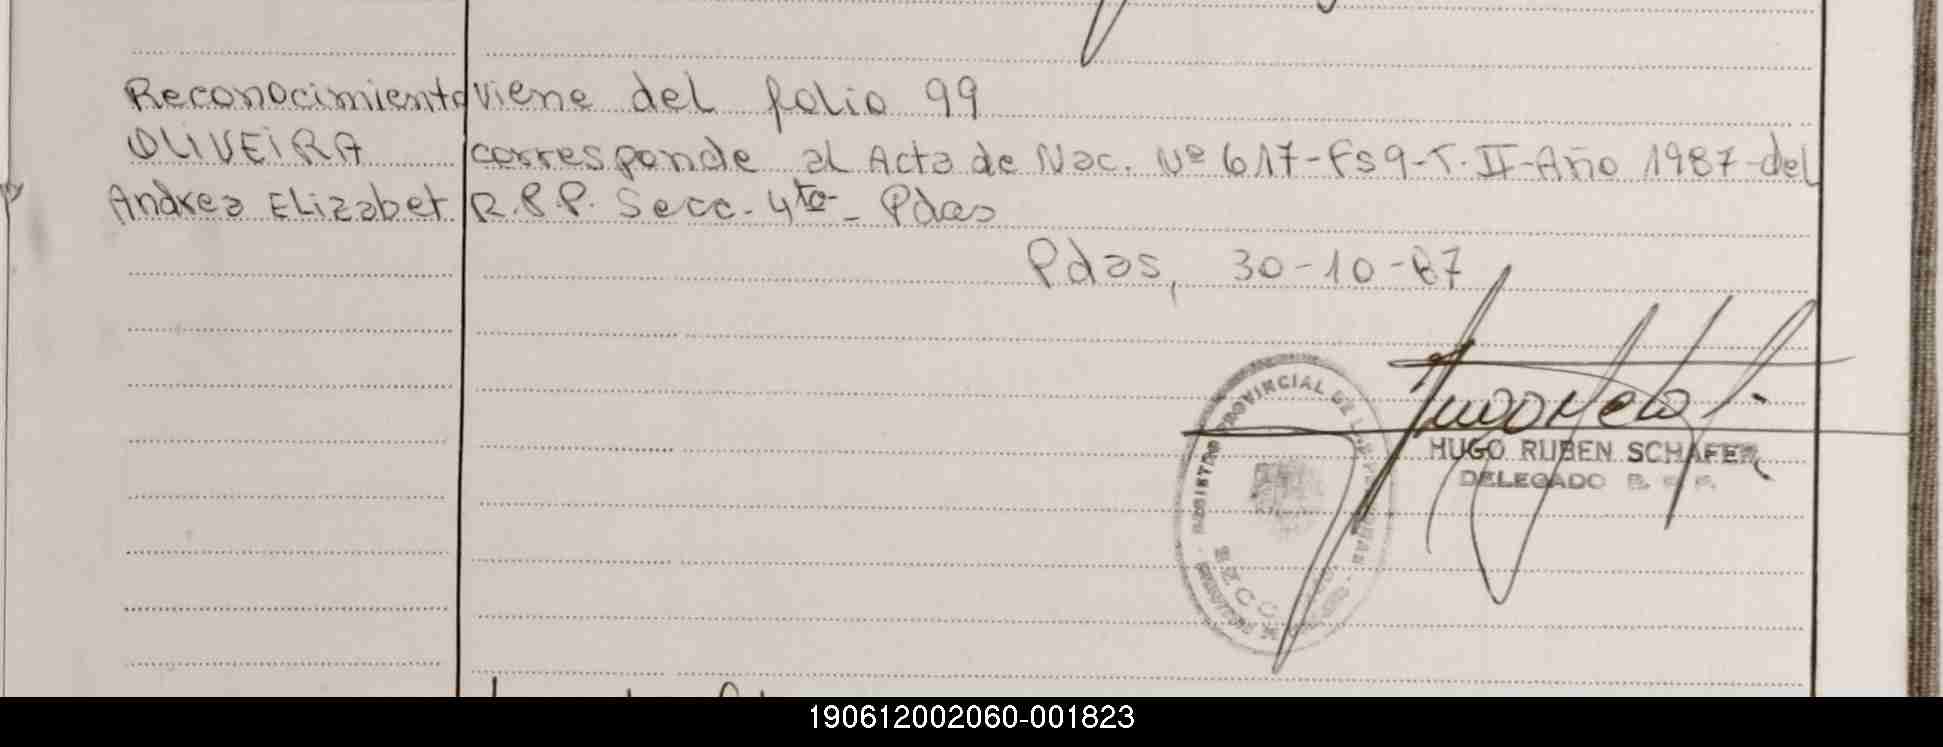 Reconocimiento viene del folio 99
OLIVEIRA corresponde al Acta de Nac. Nº 617-Fs9-T.II-Año 1987-del
Andrea Elizabet R.P.P. Secc. 4ta- Pdas
Pdas, 30-10-87
REGISTRO PROVINCIAL DE LAS PERSONAS
SECC
HUGO RUBEN SCHAFER
DELEGADO
190612002060-001823